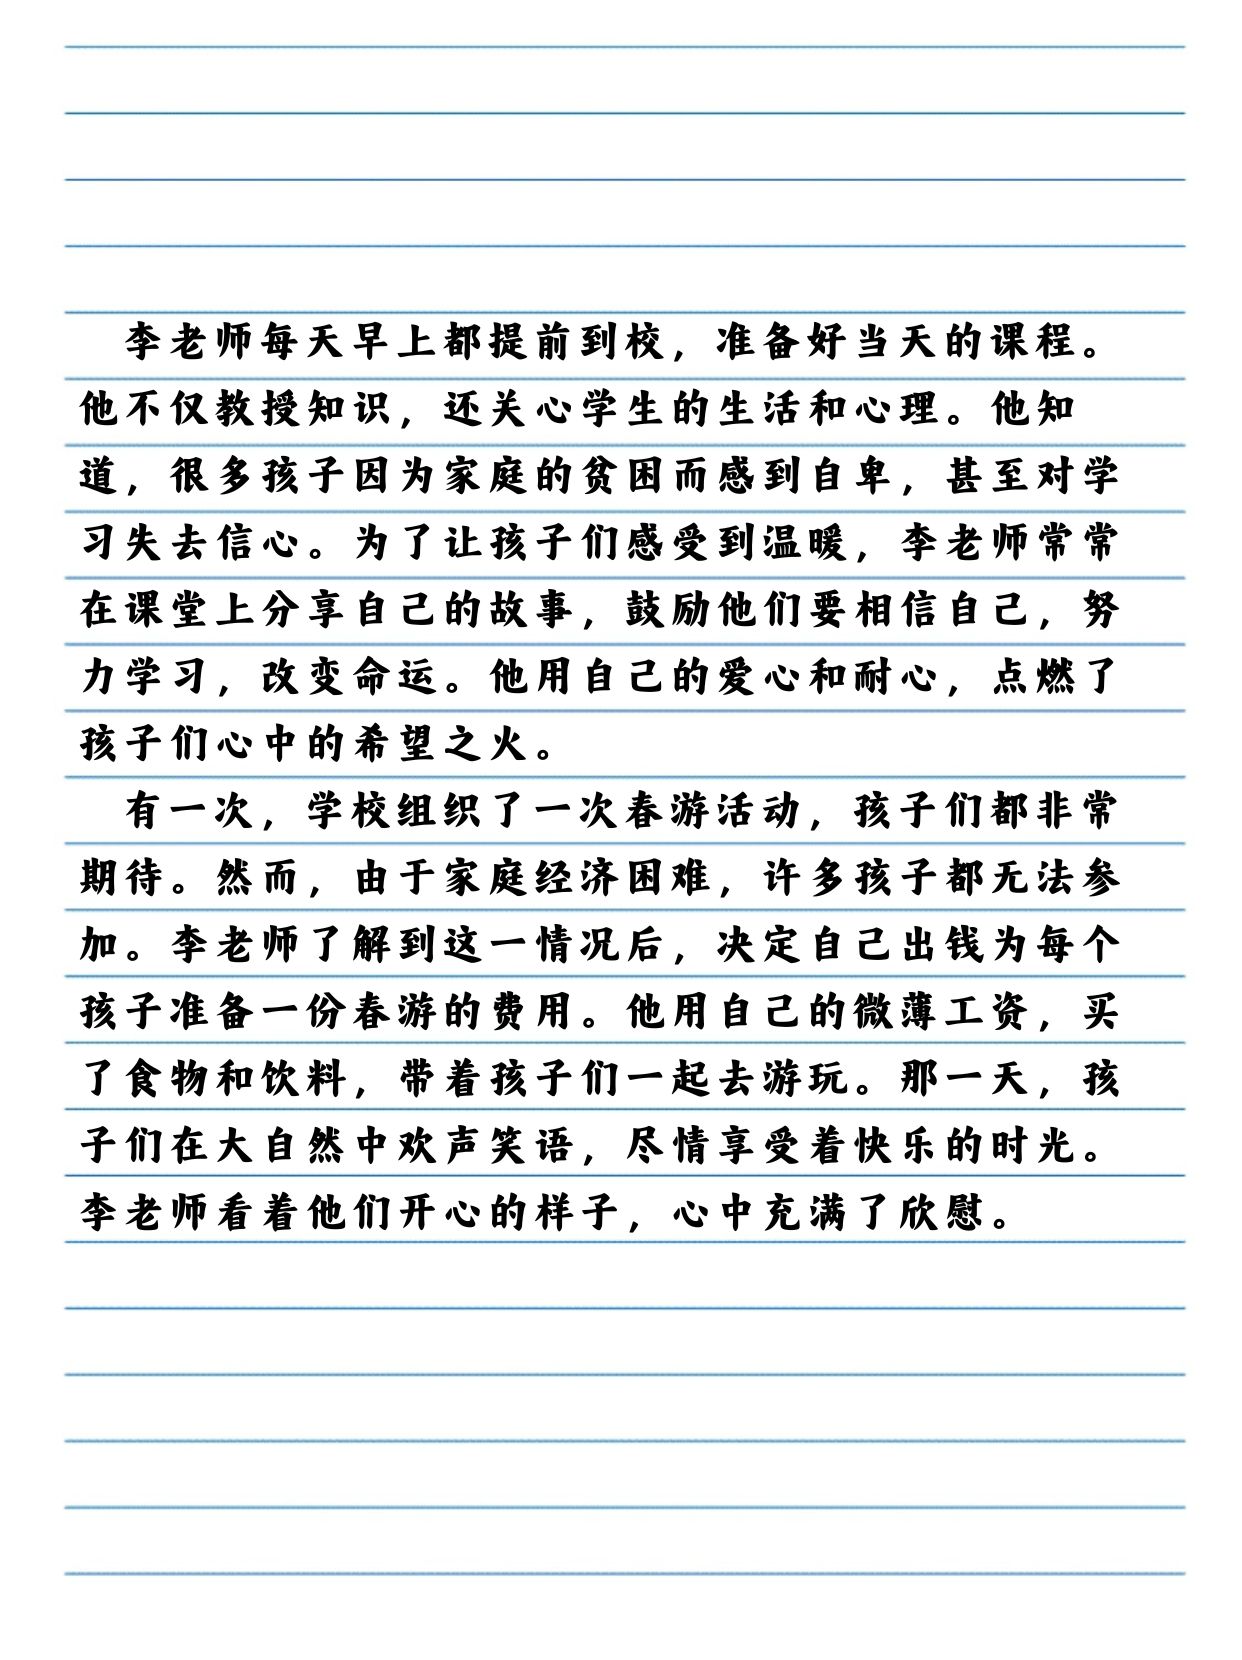 李老师每天早上都提前到校，准备好当天的课程。
他不仅教授知识，还关心学生的生活和心理。他知
道，很多孩子因为家庭的贫困而感到自卑，甚至对学
习失去信心。为了让孩子们感受到温暖，李老师常常
在课堂上分享自己的故事，鼓励他们要相信自己，努
力学习，改变命运。他用自己的爱心和耐心，点燃了
孩子们心中的希望之火。
有一次，学校组织了一次春游活动，孩子们都非常
期待。然而，由于家庭经济困难，许多孩子都无法参
加。李老师了解到这一情况后，决定自己出钱为每个
孩子准备一份春游的费用。他用自己的微薄工资，买
了食物和饮料，带着孩子们一起去游玩。那一天，孩
子们在大自然中欢声笑语，尽情享受着快乐的时光。
李老师看着他们开心的样子，心中充满了欣慰。